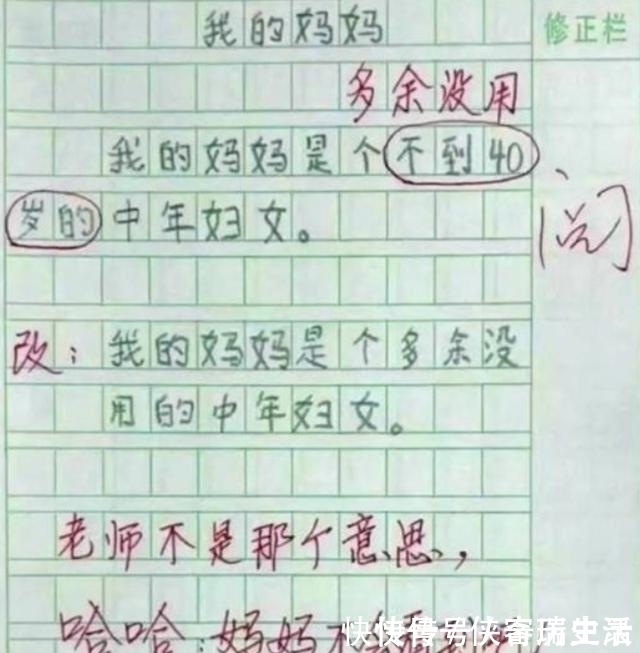 我的妈妈
修正栏
多余没用
我的妈妈是个不到40
岁的中年妇女。
阅
改：我的妈妈是个多余没
用的中年妇女。
老师不是那个意思，
哈哈
妈妈
快传号侠客瑞生活